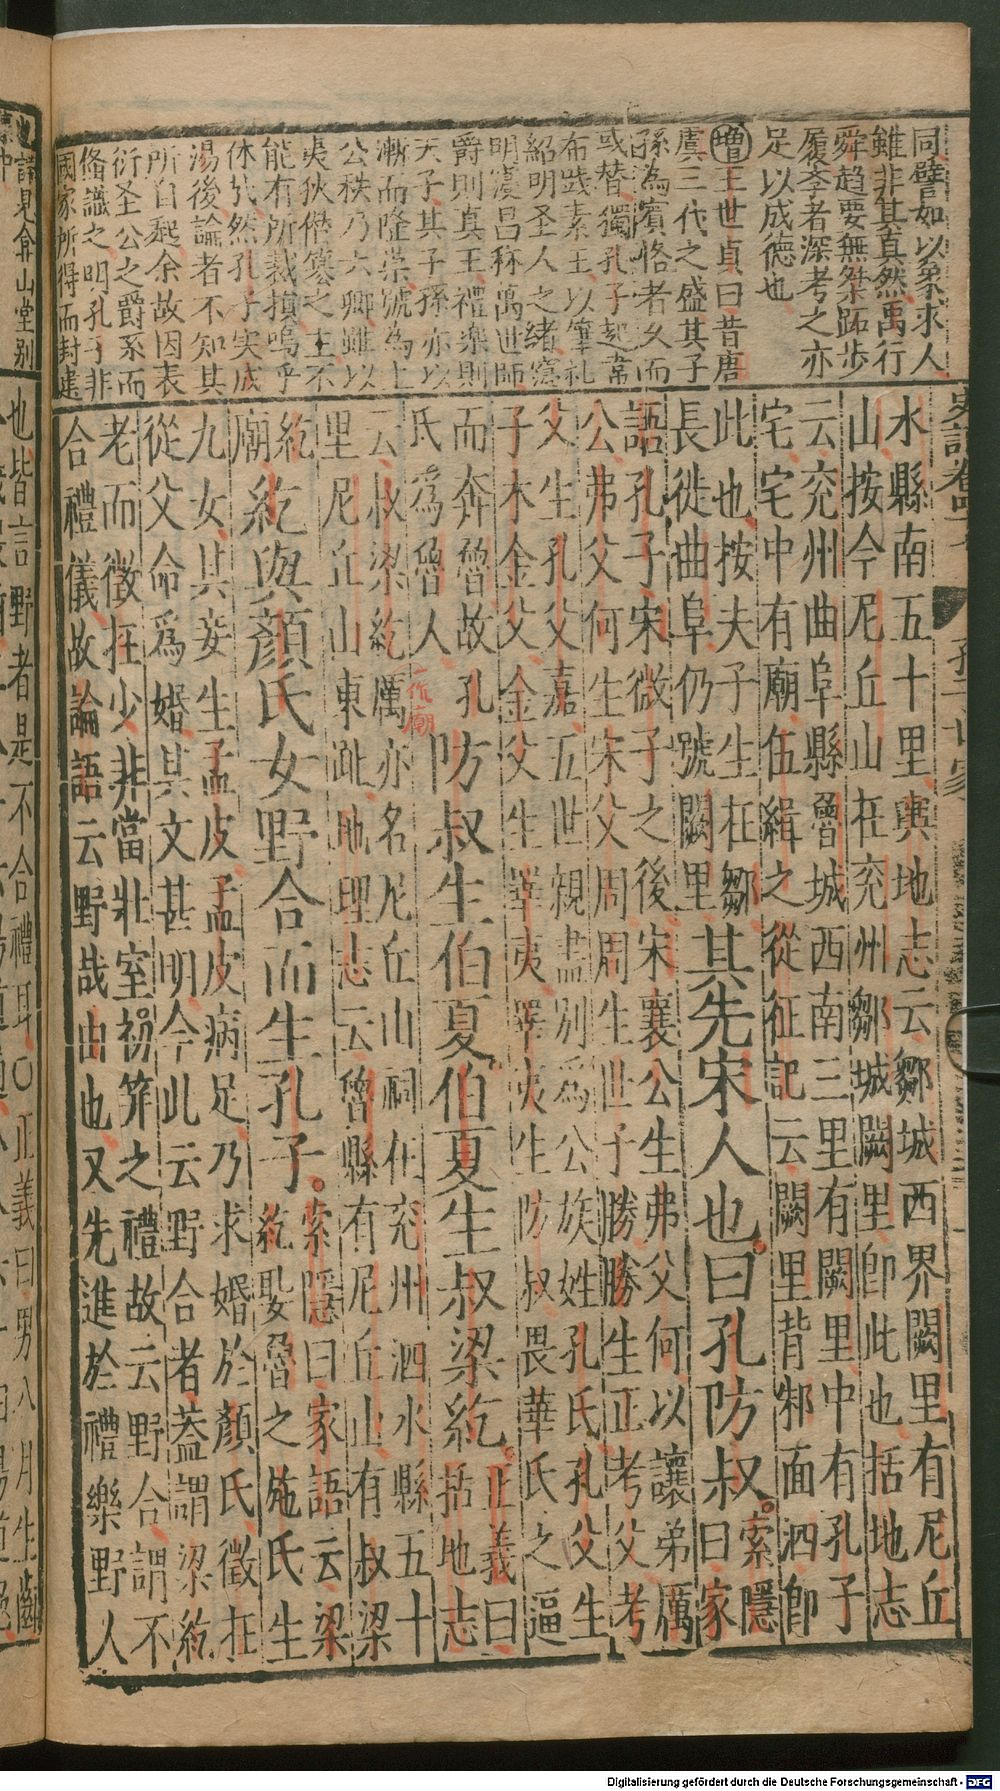 同譬如以象求人
雖非其真然禹行
舜趨要無桀跖步
履學者深考之亦
足以成德也
增王世貞曰昔唐
虞三代之盛其子
孫為賓恪者久而
或替獨孔子起韋
布哉素王以筆札
紹明圣人之緒寔
明寖昌秝萬世師
爵則真王禮樂則
天子其子孫亦以
漸而隆榮號為上
公秩乃六卿雖以
夷狄僣簒之主不
能有所裁損嗚乎
休㢤然孔子实成
湯後論者不知其
所自起余故因表
衍圣公之爵系而
偹識之明孔子非
國家所得而封建
也詳見弇山堂别
水縣南五十里輿地志云鄒城西界闕里有尼丘
山按今尼丘山在兖州鄒城闕里卽此也括地志
云兖州曲阜縣魯城西南三里有闕里中有孔子
宅宅中有廟伍緝之從征記云闕里背邾面泗卽
此也按夫子生在鄒
長徙曲阜仍號闕里
其先宋人也曰孔防叔。
索隱
曰家
語孔子宋微子之後宋襄公生弗父何以讓弟厲
公弗父何生宋父周周生世子勝勝生正考父考
父生孔父嘉五世親盡别爲公族姓孔氏孔父生
子木金父金父生睾夷睾夷生防叔畏華氏之逼
而奔魯故孔
氏爲魯人
防叔生伯夏。伯夏生叔梁紇。
正義曰
括地志
云叔梁紇厲亦名尼丘山祠在兖州泗水縣五十
一作廟
里尼丘山東趾地理志云魯縣有尼丘山有叔梁
紇
廟
紇與顏氏女野合而生孔子。
索隱曰家語云梁
紇娶魯之施氏生
九女其妾生孟皮孟皮病足乃求婚於顏氏徵在
從父命爲婚其文甚明今此云野合者葢謂梁紇
老而徵在少非當壯室初筓之禮故云野合謂不
合禮儀故論語云野哉由也又先進於禮樂野人
也皆言野者是不合禮耳○正義曰男八月生齒
Digitalisierung gefördert durch die Deutsche Forschungsgemeinschaft - DFG